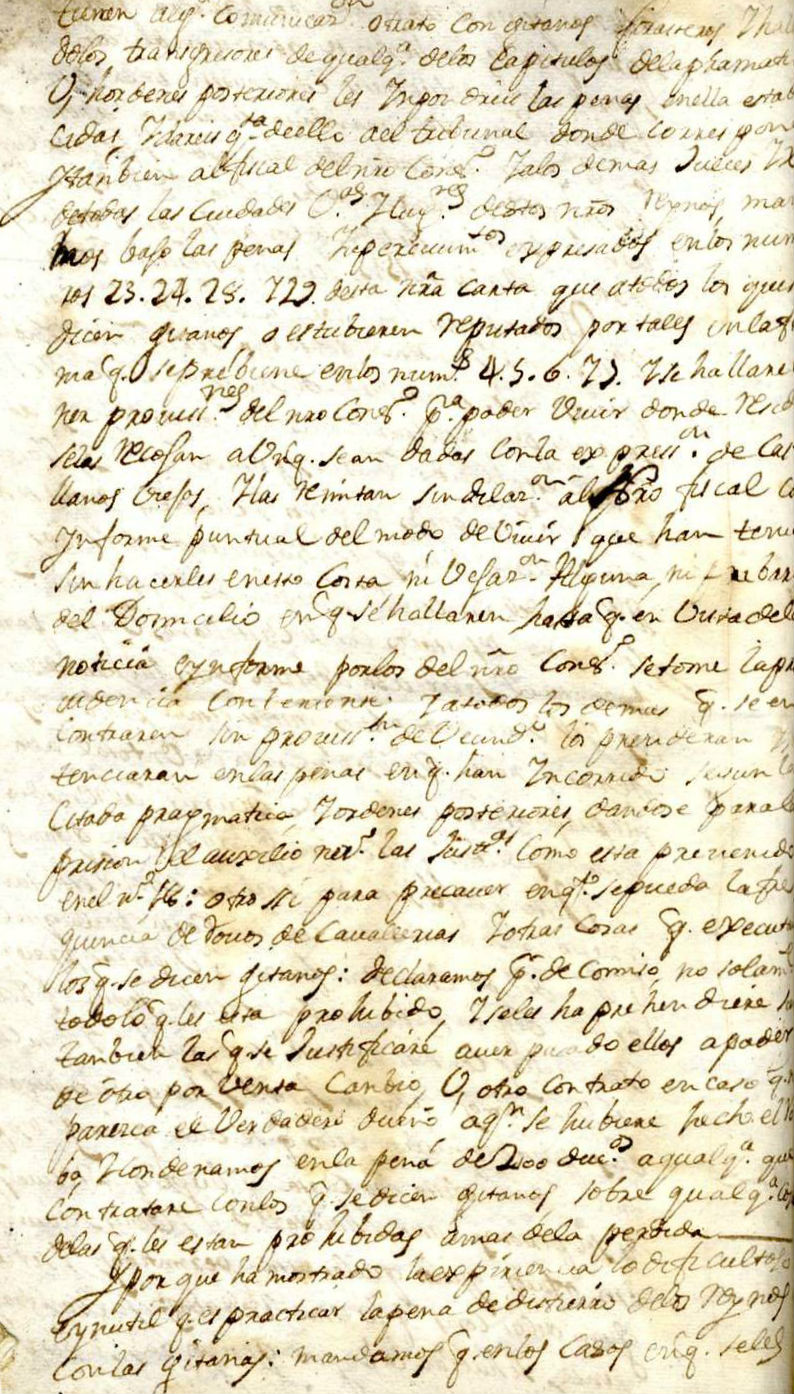 tienen alg.ª comunicaz.on o trato con gitanos forasteros
delos transgresores de qualq.ª delos Capitulos dela phamati
V, hordenes posteriores les Inpondreis las penas enella estab
cidas, Ydareis q.ta deello ael tribunal donde corres pon
Ytanbien al fiscal del nro Cons.º Yalos demas Jueces
detodas las Ciudades V.as Ylug.res destos nros reynos, man
mos bajo las penas Yapercivim.tos expresados enlos num
ros 23. 24. 28. y 29. desta nra carta que atodos los que se
dicen gitanos o estubieren reputados por tales enla for
ma q. se prebiene enlos num.s 4. 5. 6. Y 7. Yse hallaren
ner proviss.nes del nro Cons.º p.ª poder Vivir donde resid
selas recojan a Vnq. sean dadas conla express.on de Cas
llanos Viejos, Ylas remitan sin dilaz.on al nro fiscal co
Ynforme puntual del modo de Vivir que han teni
sin hacerles enesto Costa ni Vejaz.on Alguna, ni
del Domicilio en q. se hallaren hasta q. en Vista dela
noticia eynforme porlos del nro Cons.º se tome la pro
videncia conbeniente. Yatodos los demas q. se en
contraren sin proviss.on de Vecind.d los prenderan
tenciaran enlas penas en q. han Yncorrido segun la
Citada pragmatica, Yordenes posteriores, dandose para la
prision el auxilio nez.º las Just.as como esta prevenido
enel n.º 18: otro ssi para precaver en q.to sepueda la fre
quencia de rovos de Cavallerias Yotras Cosas q. executa
los q. se dicen gitanos: declaramos p.r de Comiso, no solam.te
todo lo q. les esta prohibido, Yseles ha prehendiere
tanbien las q. se Justificare aver pasado ellos a poder
de otro por Venta Canbio V, otro Contrato en caso q. no
parezca el Verdadero dueño aq.n se hubiere hecho el Ro
bo, Ycondenamos enla pena de 200 duc.os a qualq.ª que
contratare conlos q. se dicen gitanos sobre qualq.ª cosa
delas q. les estan prohibidas amas dela perdida
Yporque ha mostrado la expiriencia lo dificultoso
eynutil q. es practicar la pena de distierro delos reynos
conlas gitanas: mandamos q. enlos Casos en q. seles